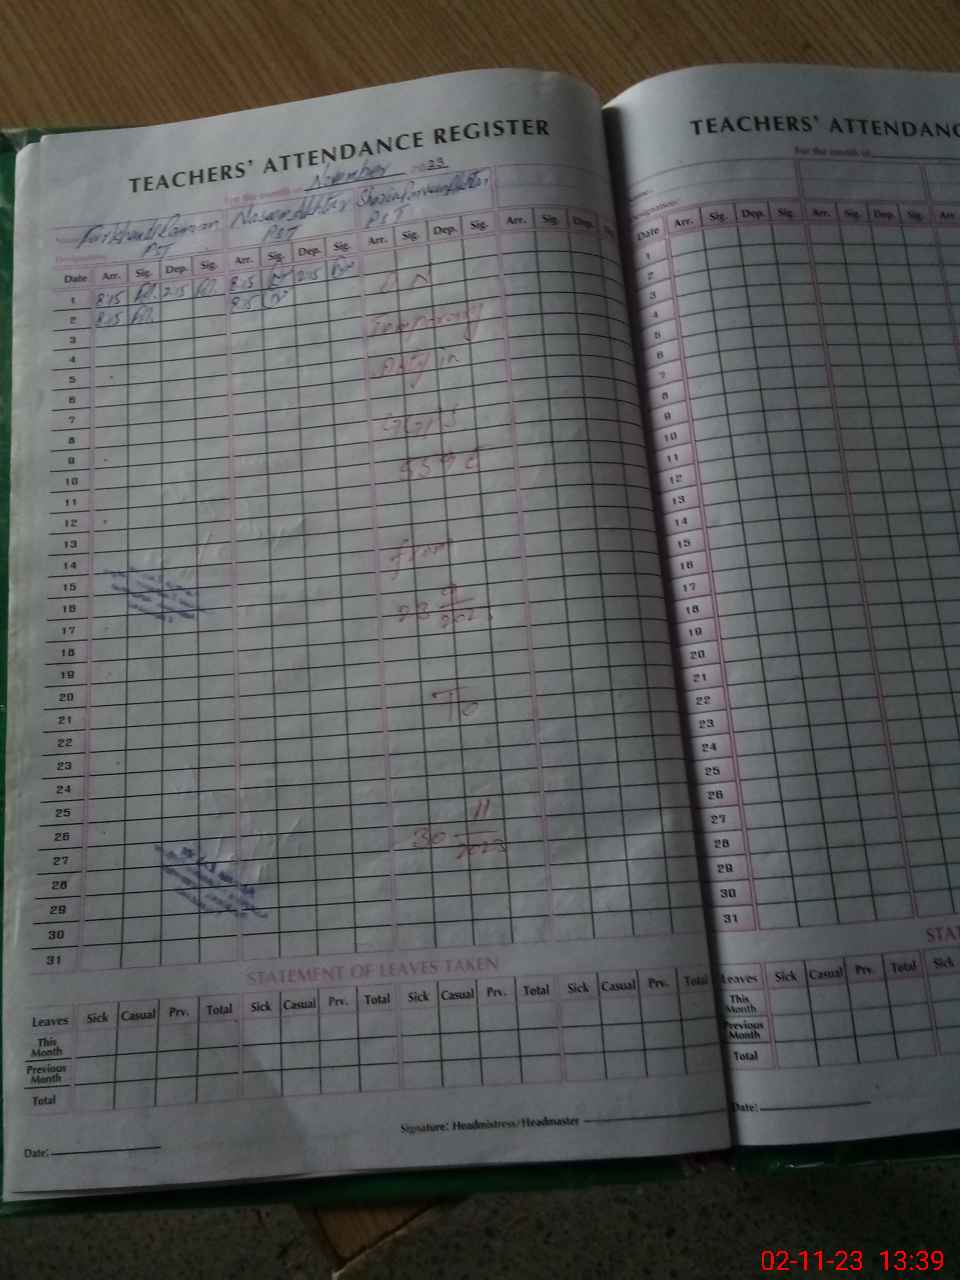 TEACHERS' ATTENDANCE REGISTER
For the month of November 2023
PST PST PST
Date Arr. Sig. Dep. Sig. Arr. Sig. Dep. Sig. Arr. Sig. Dep. Sig. Arr. Sig. Dep. Sig.
1 8:15 2:15 8:15 2:15
2 8:15 8:15
3 Temporary
4
5 duty in
6
7
8 GGPS
9
10
11
12
13
14 from
15
16
17
18
19
20
21 To
22
23
24
25
26 30 11
27 2023
28
29
30
31
STATEMENT OF LEAVES TAKEN
Leaves Sick Casual Prv. Total Sick Casual Prv. Total Sick Casual Prv. Total Sick Casual Prv. Total
This Month
Previous Month
Total
Signature: Headmistress/Headmaster
Date:
TEACHERS' ATTENDANC
For the month of
Date Arr. Sig. Dep. Sig. Arr. Sig. Dep. Sig. Arr
1
2
3
4
5
6
7
8
9
10
11
12
13
14
15
16
17
18
19
20
21
22
23
24
25
26
27
28
29
30
31
STAT
Leaves Sick Casual Prv. Total Sick
This Month
Previous Month
Total
Date:
02-11-23 13:39